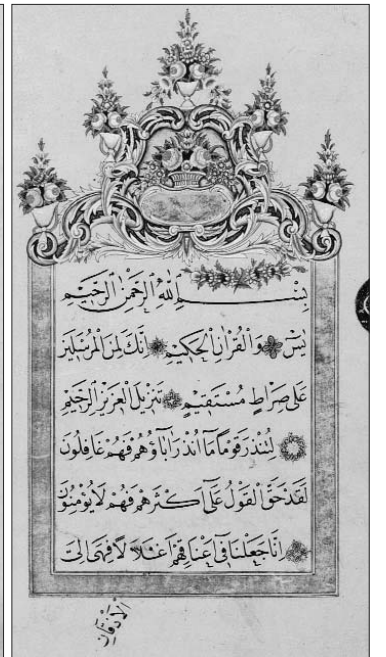 بِسْمِ اللهِ الرَّحْمٰنِ الرَّحِيمِ
يٰسٓ وَالْقُرْاٰنِ الْحَكِيمِ اِنَّكَ لَمِنَ الْمُرْسَلِينَ
عَلٰى صِرَاطٍ مُسْتَقِيمٍ تَنْزِيلَ الْعَزِيزِ الرَّحِيمِ
لِتُنْذِرَ قَوْمًا مَا اُنْذِرَ اٰبَاؤُهُمْ فَهُمْ غَافِلُونَ
لَقَدْ حَقَّ الْقَوْلُ عَلٰى اَكْثَرِهِمْ فَهُمْ لَا يُؤْمِنُونَ
اِنَّا جَعَلْنَا فِى اَعْنَاقِهِمْ اَغْلَالًا فَهِىَ اِلَى
الْاَذْقَانِ